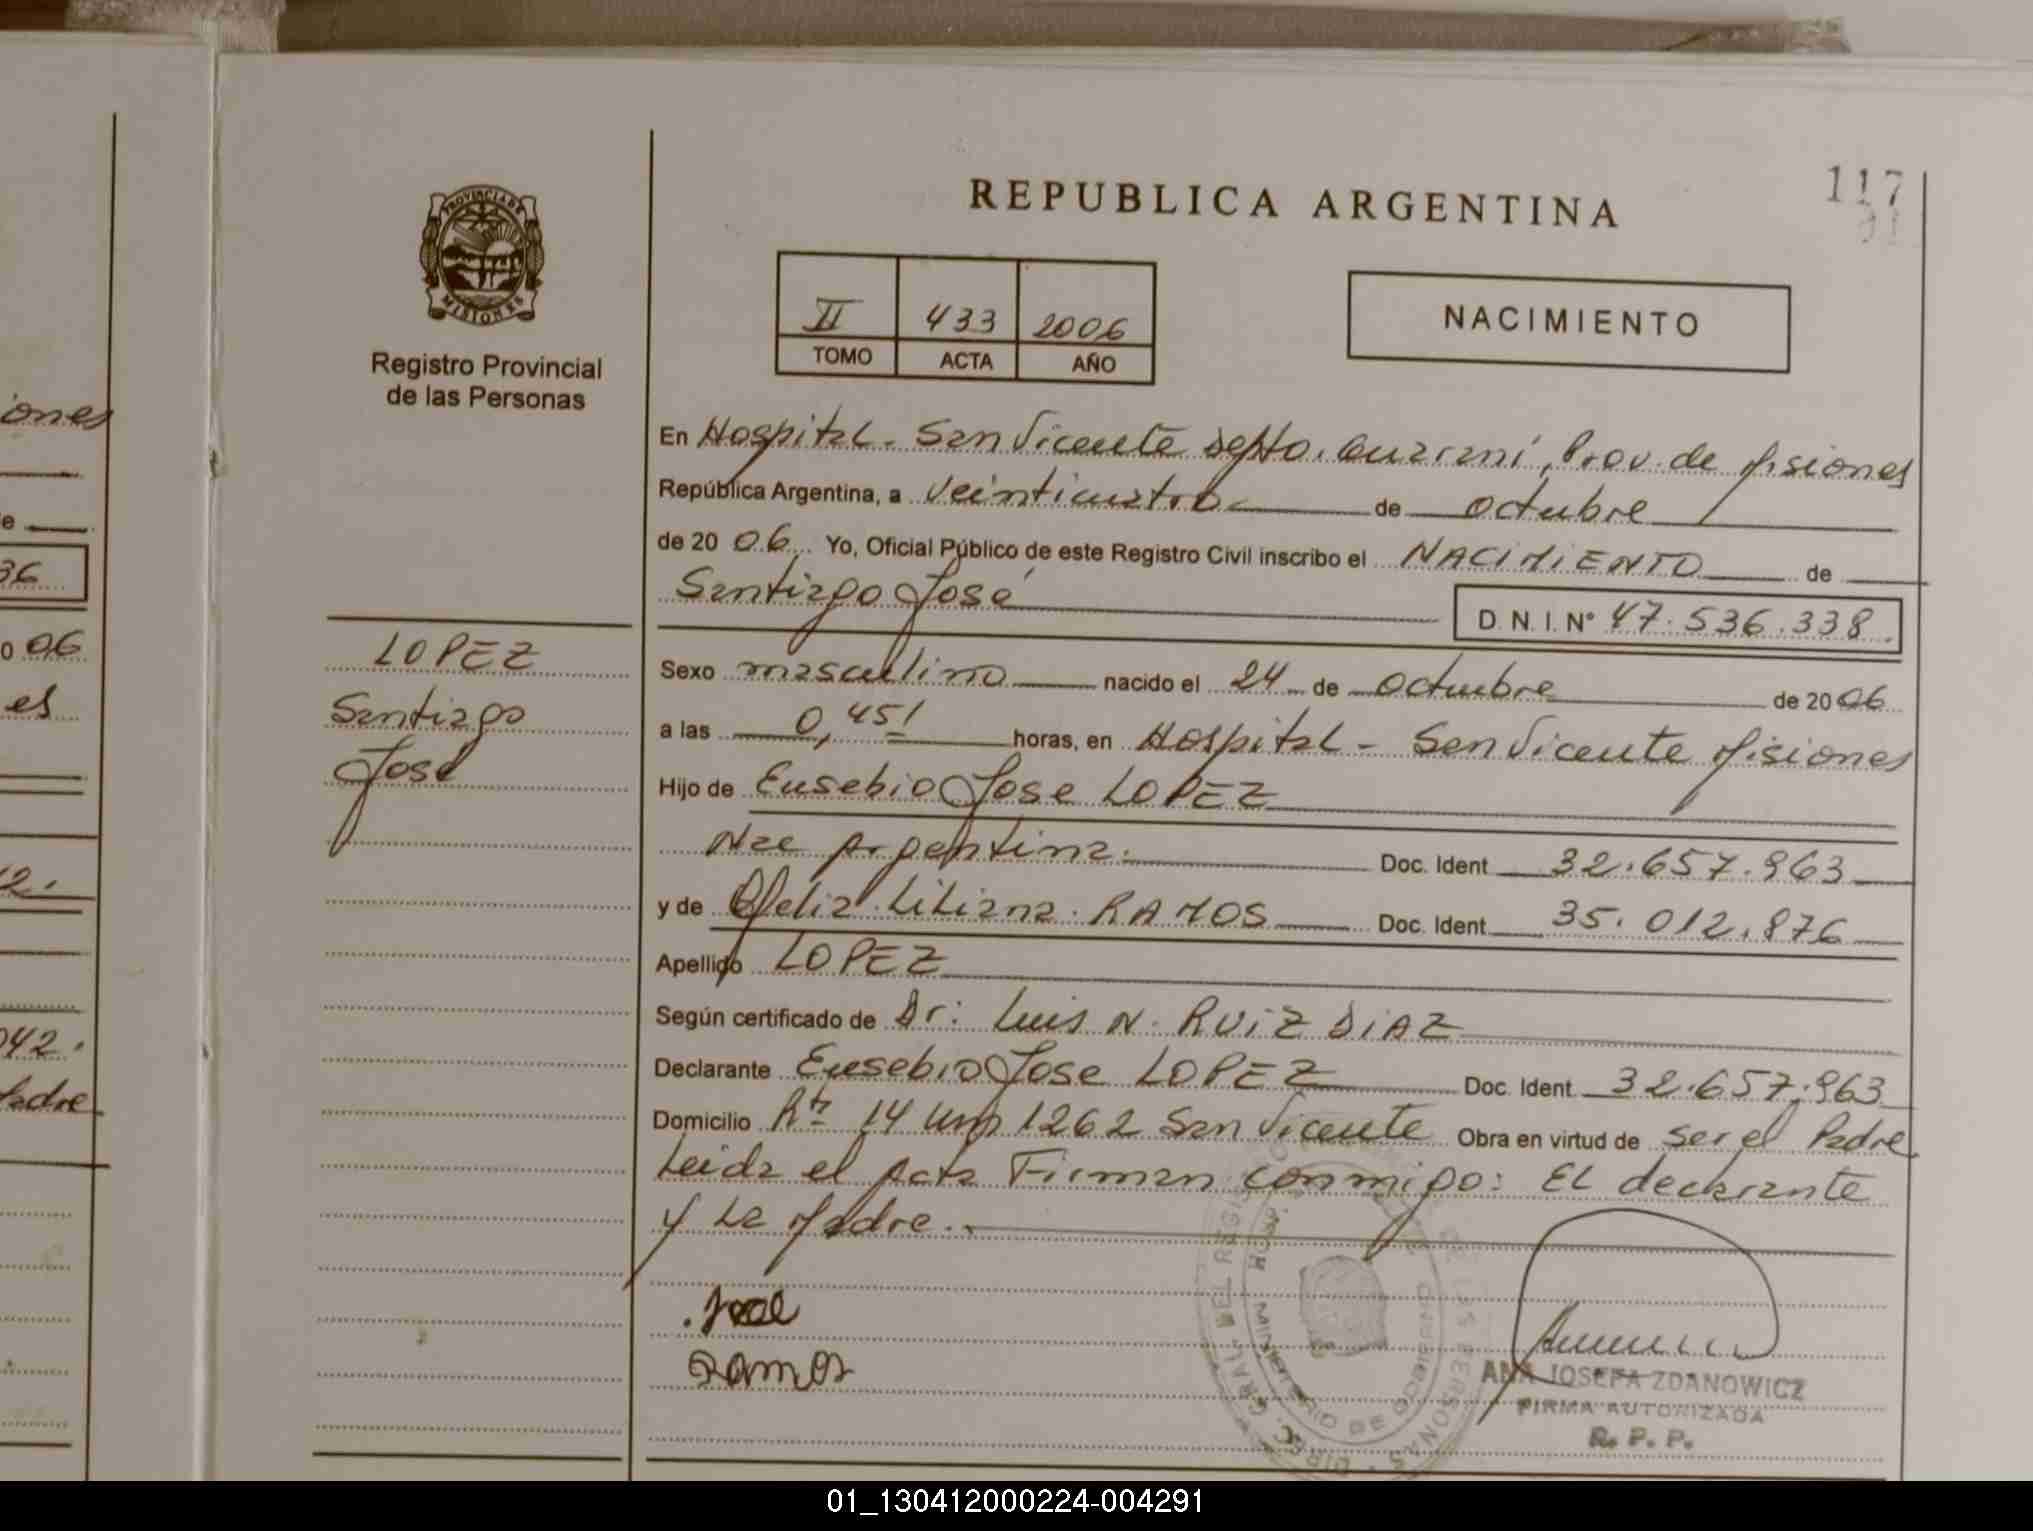 REPUBLICA ARGENTINA
117
PROVINCIA DE
MISIONES
Registro Provincial
de las Personas
II 433 2006
TOMO ACTA AÑO
NACIMIENTO
En Hospital - San Vicente Depto. Guaraní, Prov. de Misiones
República Argentina, a veinticuatro de octubre
de 20 06 Yo, Oficial Público de este Registro Civil inscribo el NACIMIENTO de
Santiago José
D.N.I. Nº 47.536.338.
LOPEZ
Santiago
José
Sexo masculino nacido el 24 de octubre de 20 06
a las 0,45' horas, en Hospital - San Vicente Misiones
Hijo de Eusebio Jose LOPEZ
Nac Argentina. Doc. Ident 32.657.963
y de Ofelia Liliana RAMOS Doc. Ident 35.012.876
Apellido LOPEZ
Según certificado de Dr: Luis N. RUIZ DIAZ
Declarante Eusebio Jose LOPEZ Doc. Ident. 32.657.963
Domicilio Rta 14 Km 1262 San Vicente Obra en virtud de ser el Padre
Leida el acta Firman conmigo: El declarante
y La Madre.
Jose
Ramos
ANA JOSEFA ZDANOWICZ
FIRMA AUTORIZADA
R. P. P.
DIREC. GRAL. DEL REGISTRO DE LAS PERSONAS
MINISTERIO DE GOBIERNO
ones
e
36
o 06
es
2.
042.
Padre
01_130412000224-004291